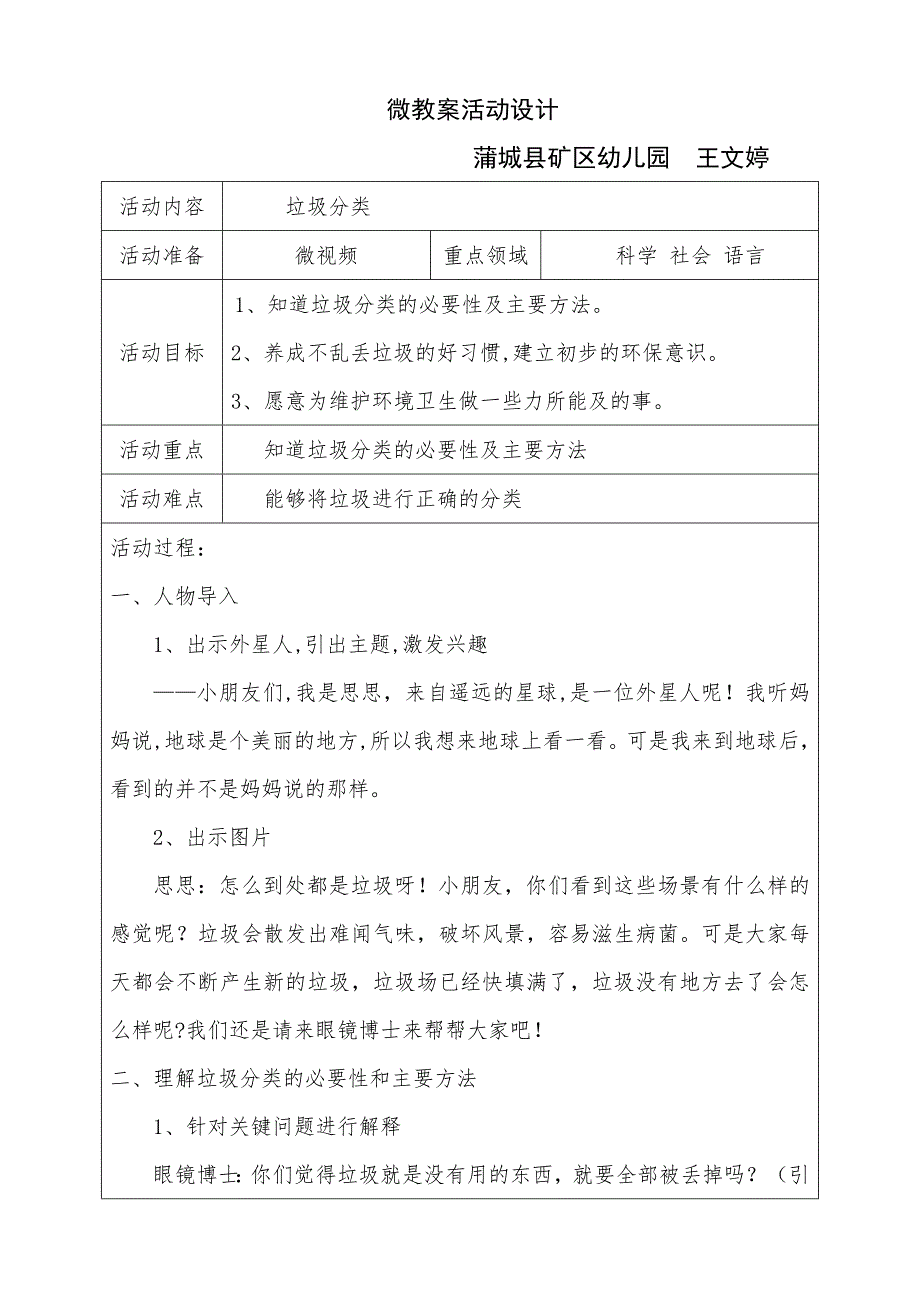 微教案活动设计
蒲城县矿区幼儿园 王文婷
活动内容 垃圾分类
活动准备 微视频 重点领域 科学 社会 语言
活动目标
1、知道垃圾分类的必要性及主要方法。
2、养成不乱丢垃圾的好习惯,建立初步的环保意识。
3、愿意为维护环境卫生做一些力所能及的事。
活动重点 知道垃圾分类的必要性及主要方法
活动难点 能够将垃圾进行正确的分类
活动过程：
一、人物导入
1、出示外星人,引出主题,激发兴趣
——小朋友们,我是思思，来自遥远的星球,是一位外星人呢！我听妈
妈说,地球是个美丽的地方,所以我想来地球上看一看。可是我来到地球后，
看到的并不是妈妈说的那样。
2、出示图片
思思：怎么到处都是垃圾呀！小朋友，你们看到这些场景有什么样的
感觉呢？垃圾会散发出难闻气味，破坏风景，容易滋生病菌。可是大家每
天都会不断产生新的垃圾，垃圾场已经快填满了，垃圾没有地方去了会怎
么样呢?我们还是请来眼镜博士来帮帮大家吧！
二、理解垃圾分类的必要性和主要方法
1、针对关键问题进行解释
眼镜博士：你们觉得垃圾就是没有用的东西，就要全部被丢掉吗？（引